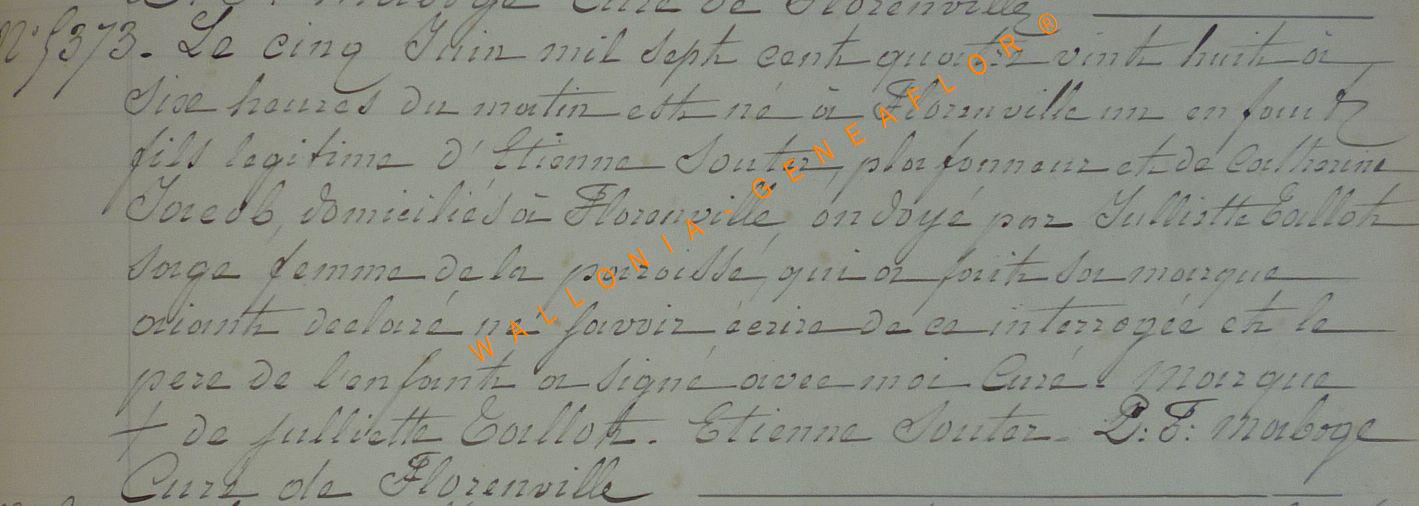 P. F. maboge Curé de Florenville
N° 5373. Le cinq Juin mil sept cent quatre vint huit à
six heures du matin est né à Florenville un enfant
fils legitime d'Etienne Souter, plafonneur et de Catherine
Jacob, domiciliés à Florenville, ondoyé par Julliette Tallot
sage femme de la paroisse, qui a fait sa marque
aiant declaré ne savoir écrire de ce interrogée et le
pere de l'enfant a signé avec moi Curé. Marque
+ de Julliette Tallot. Etienne Souter. P: F: Maboge
Curé de Florenville
WALLONIA - GENEAFLOR®